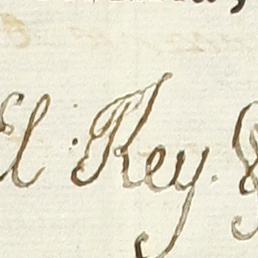 El Rey.